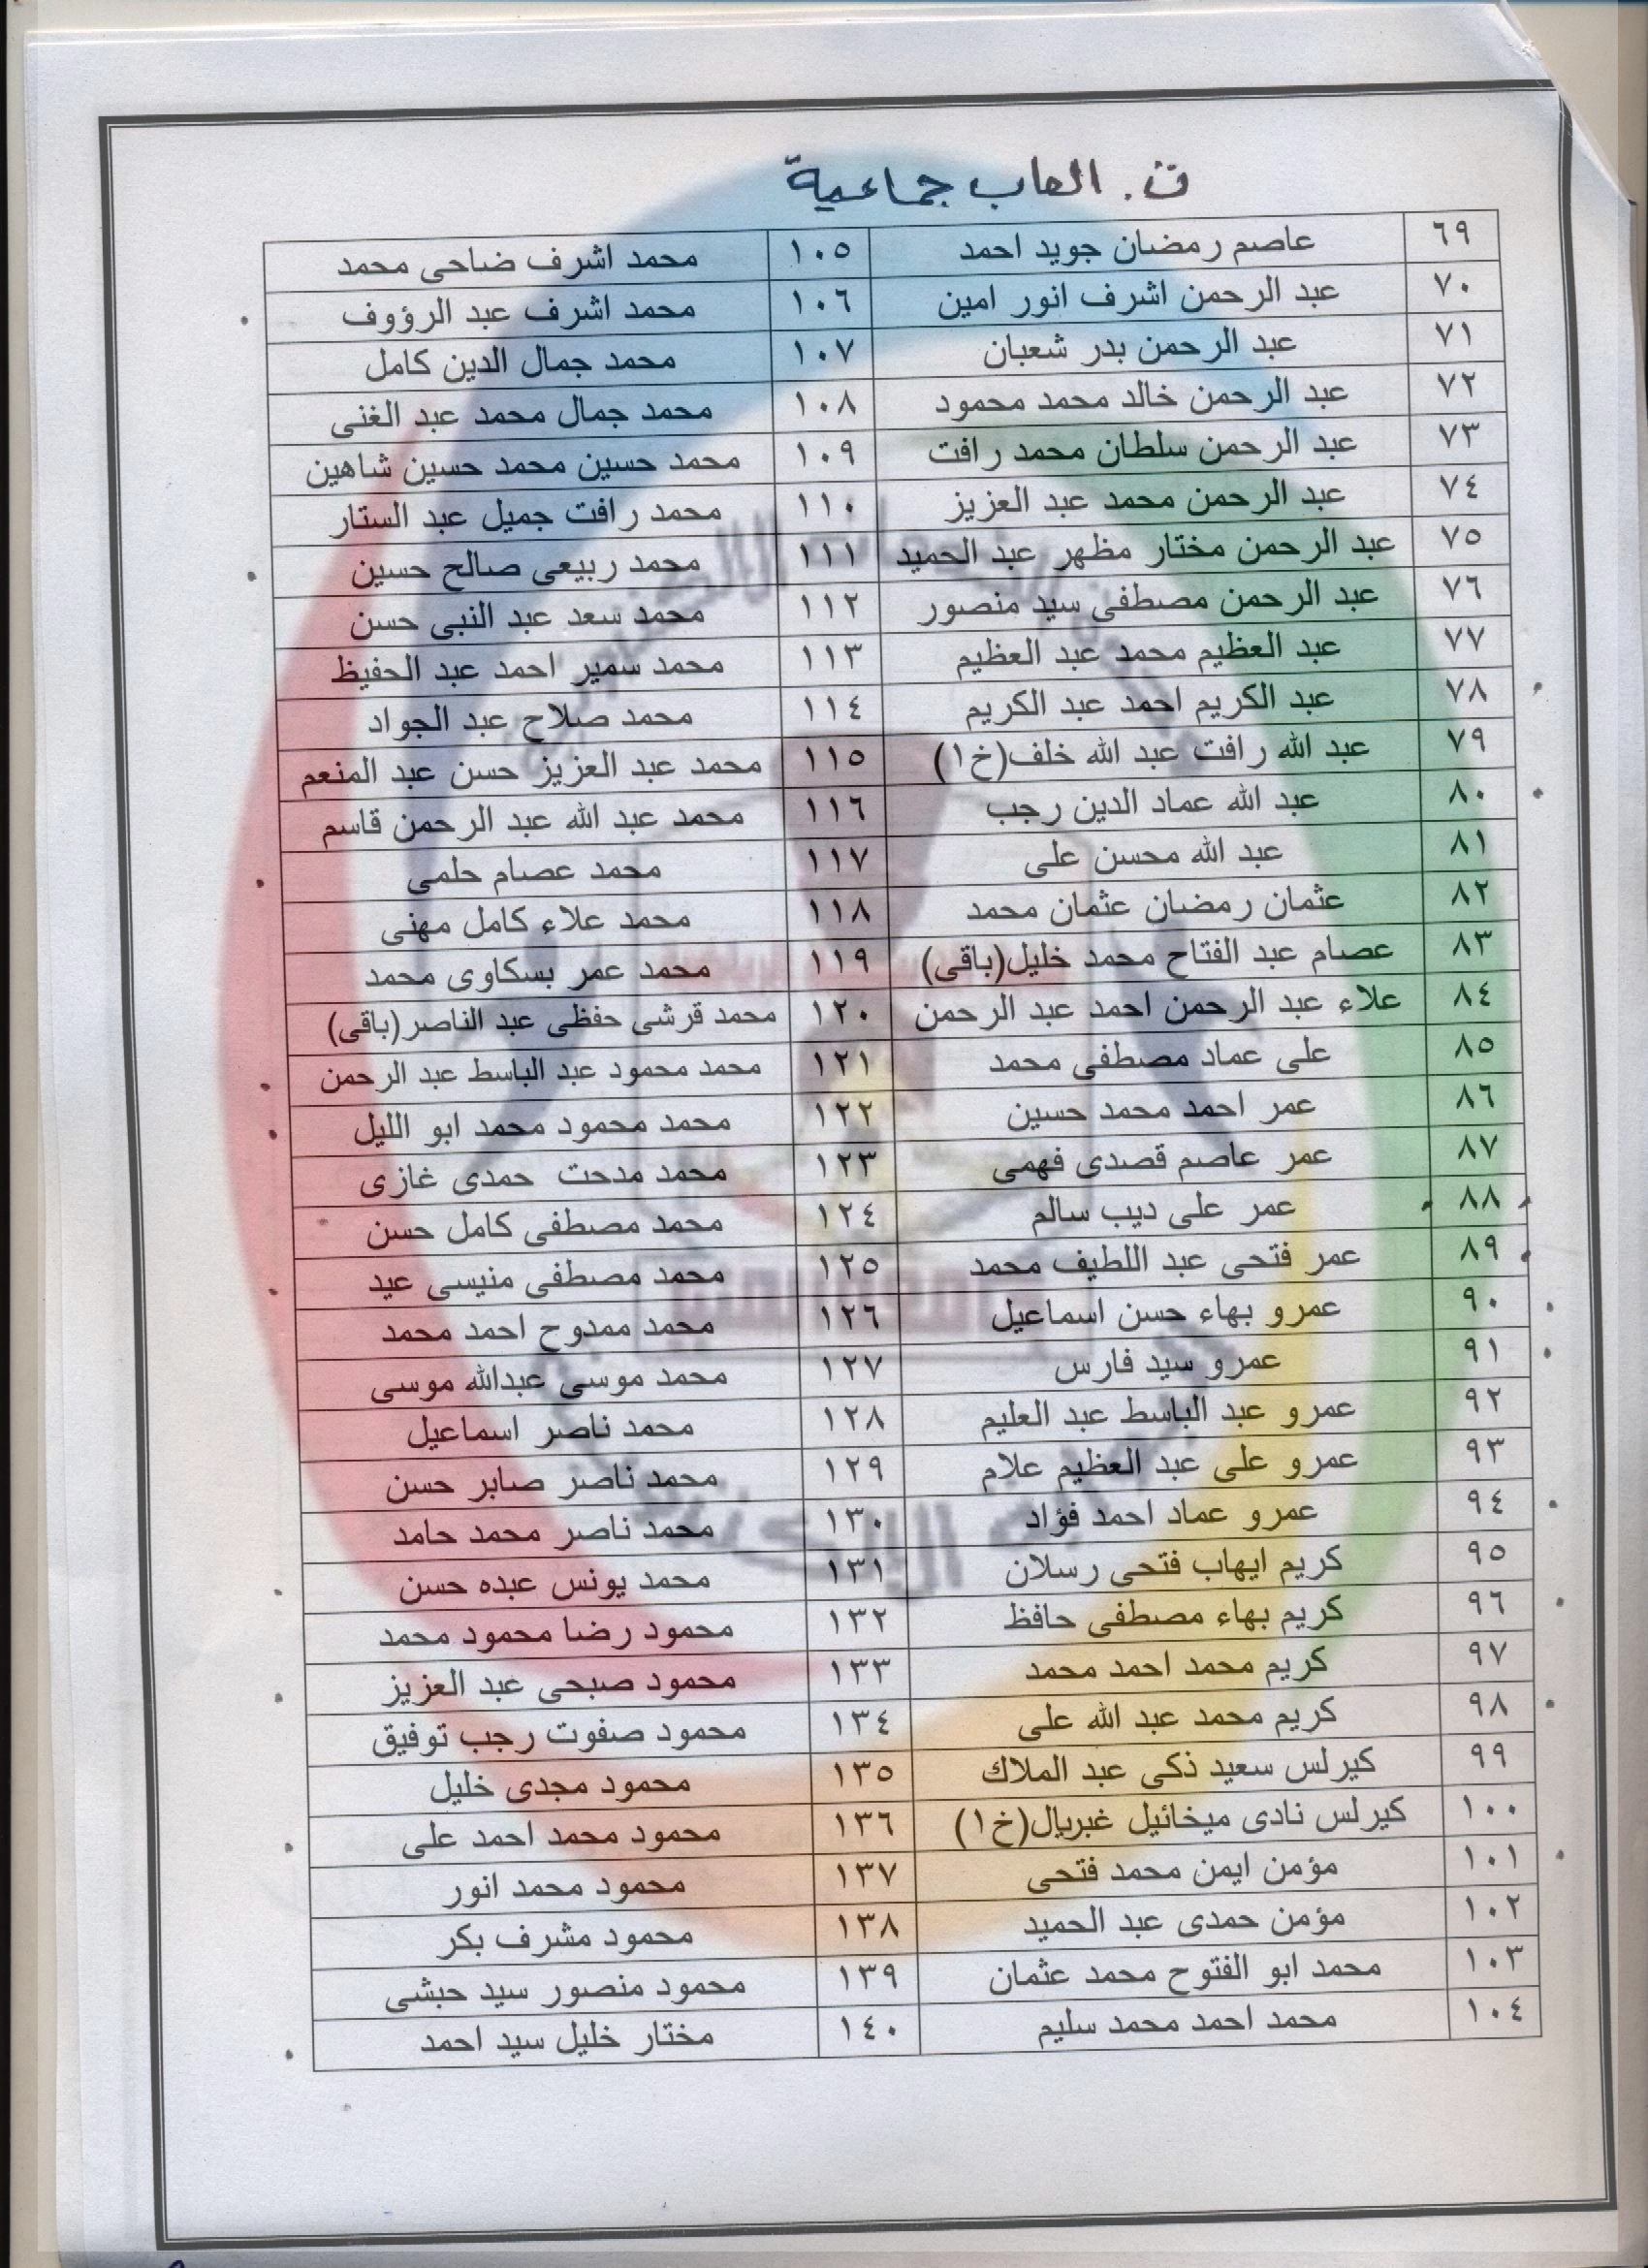 ت. العاب جماعية
٦٩ عاصم رمضان جويد احمد ١٠٥ محمد اشرف ضاحى محمد
٧٠ عبد الرحمن اشرف انور امين ١٠٦ محمد اشرف عبد الرؤوف
٧١ عبد الرحمن بدر شعبان ١٠٧ محمد جمال الدين كامل
٧٢ عبد الرحمن خالد محمد محمود ١٠٨ محمد جمال محمد عبد الغنى
٧٣ عبد الرحمن سلطان محمد رافت ١٠٩ محمد حسين محمد حسين شاهين
٧٤ عبد الرحمن محمد عبد العزيز ١١٠ محمد رافت جميل عبد الستار
٧٥ عبد الرحمن مختار مظهر عبد الحميد ١١١ محمد ربيعى صالح حسين
٧٦ عبد الرحمن مصطفى سيد منصور ١١٢ محمد سعد عبد النبى حسن
٧٧ عبد العظيم محمد عبد العظيم ١١٣ محمد سمير احمد عبد الحفيظ
٧٨ عبد الكريم احمد عبد الكريم ١١٤ محمد صلاح عبد الجواد
٧٩ عبد الله رافت عبد الله خلف(خ١) ١١٥ محمد عبد العزيز حسن عبد المنعم
٨٠ عبد الله عماد الدين رجب ١١٦ محمد عبد الله عبد الرحمن قاسم
٨١ عبد الله محسن على ١١٧ محمد عصام حلمى
٨٢ عثمان رمضان عثمان محمد ١١٨ محمد علاء كامل مهنى
٨٣ عصام عبد الفتاح محمد خليل(باقى) ١١٩ محمد عمر بسكاوى محمد
٨٤ علاء عبد الرحمن احمد عبد الرحمن ١٢٠ محمد قرشى حفظى عبد الناصر(باقى)
٨٥ على عماد مصطفى محمد ١٢١ محمد محمود عبد الباسط عبد الرحمن
٨٦ عمر احمد محمد حسين ١٢٢ محمد محمود محمد ابو الليل
٨٧ عمر عاصم قصدى فهمى ١٢٣ محمد مدحت حمدى غازى
٨٨ عمر على ديب سالم ١٢٤ محمد مصطفى كامل حسن
٨٩ عمر فتحى عبد اللطيف محمد ١٢٥ محمد مصطفى منيسى عيد
٩٠ عمرو بهاء حسن اسماعيل ١٢٦ محمد ممدوح احمد محمد
٩١ عمرو سيد فارس ١٢٧ محمد موسى عبدالله موسى
٩٢ عمرو عبد الباسط عبد العليم ١٢٨ محمد ناصر اسماعيل
٩٣ عمرو على عبد العظيم علام ١٢٩ محمد ناصر صابر حسن
٩٤ عمرو عماد احمد فؤاد ١٣٠ محمد ناصر محمد حامد
٩٥ كريم ايهاب فتحى رسلان ١٣١ محمد يونس عبده حسن
٩٦ كريم بهاء مصطفى حافظ ١٣٢ محمود رضا محمود محمد
٩٧ كريم محمد احمد محمد ١٣٣ محمود صبحى عبد العزيز
٩٨ كريم محمد عبد الله على ١٣٤ محمود صفوت رجب توفيق
٩٩ كيرلس سعيد ذكى عبد الملاك ١٣٥ محمود مجدى خليل
١٠٠ كيرلس نادى ميخائيل غبريال(خ١) ١٣٦ محمود محمد احمد على
١٠١ مؤمن ايمن محمد فتحى ١٣٧ محمود محمد انور
١٠٢ مؤمن حمدى عبد الحميد ١٣٨ محمود مشرف بكر
١٠٣ محمد ابو الفتوح محمد عثمان ١٣٩ محمود منصور سيد حبشى
١٠٤ محمد احمد محمد سليم ١٤٠ مختار خليل سيد احمد